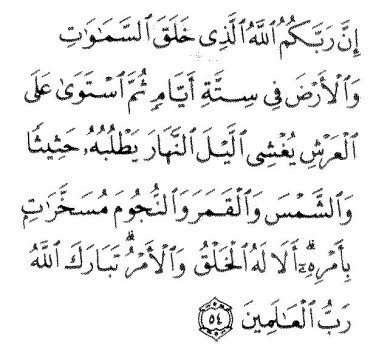 إِنَّ رَبَّكُمُ ٱللَّهُ ٱلَّذِى خَلَقَ ٱلسَّمَٰوَٰتِ
وَٱلْأَرْضَ فِى سِتَّةِ أَيَّامٍ ثُمَّ ٱسْتَوَىٰ عَلَى
ٱلْعَرْشِ يُغْشِى ٱلَّيْلَ ٱلنَّهَارَ يَطْلُبُهُۥ حَثِيثًا
وَٱلشَّمْسَ وَٱلْقَمَرَ وَٱلنُّجُومَ مُسَخَّرَٰتٍۭ
بِأَمْرِهِۦٓ ۗ أَلَا لَهُ ٱلْخَلْقُ وَٱلْأَمْرُ ۗ تَبَارَكَ ٱللَّهُ
رَبُّ ٱلْعَٰلَمِينَ ٥٤